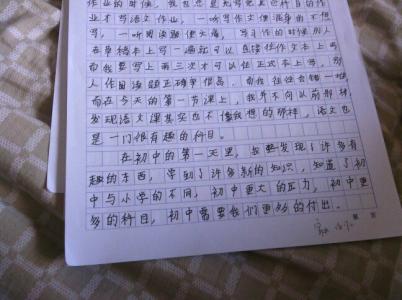 作业的时候,我也总是先写完其它科目的作
业才写语文作业,一听写作文便浑身的不想
写,一听阅读题便头痛,写习作的时候别人
在草稿本上写一遍就可以直接在作文本上写
而我要写上两三次才可以在正式本上写,别
人作阅读题正确率很高,而我往往会错一堆
而在今天的第一节课上,我并不向以前那样
发现语文课其实也不像我想的那样,语文也
是一门很有趣的科目。
在初中的第一天里,我发现了许多有
趣的东西,学到了许多新的知识,知道了初
中与小学的不同,初中更大的压力,初中更
多的科目,初中需要我们更多的付出。